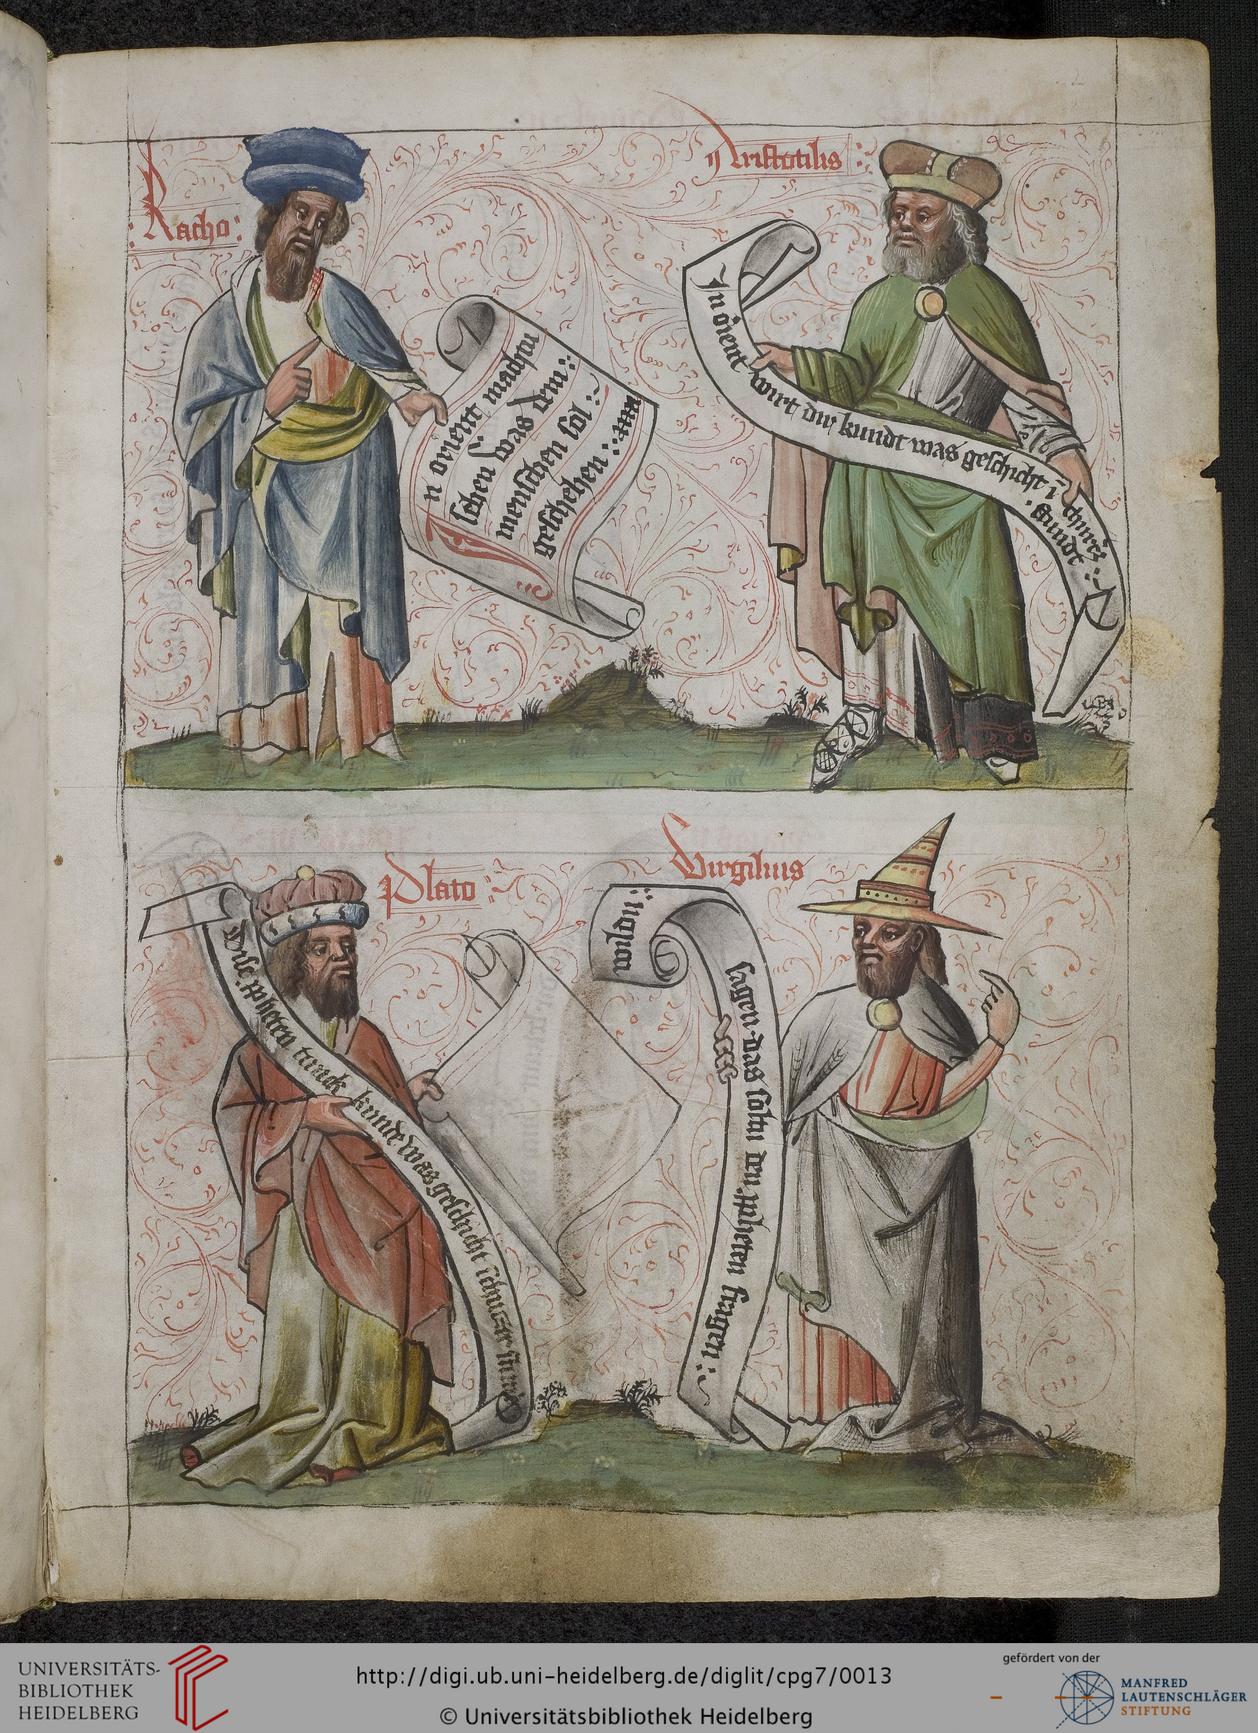 Racho:
Aristotilis:
In orientt machtu
sehen was dem:
menschen sol:
geschehen::
In dient wirt dir kundt was geschicht ī churcz:
stundt
Plato
Virgilius
Dise ppheten tunck kunde was geschicht ī churczer stund
sagen das soltu den ppheten fragen:
UNIVERSITÄTS-
BIBLIOTHEK
HEIDELBERG
http://digi.ub.uni-heidelberg.de/diglit/cpg7/0013
© Universitätsbibliothek Heidelberg
gefördert von der
MANFRED
LAUTENSCHLÄGER
STIFTUNG